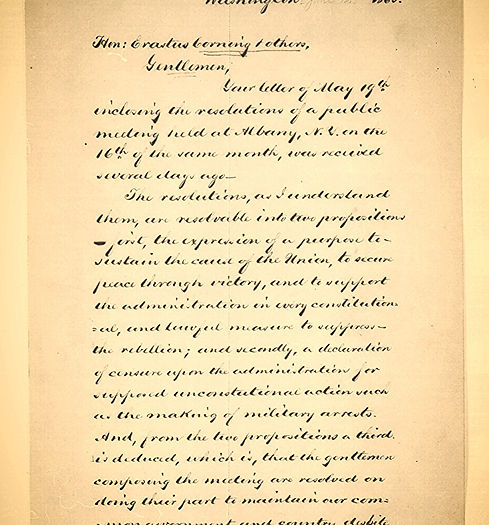 Washington
Hon: Erastus Corning & others,
Gentlemen,
Your letter of May 19th
inclosing the resolutions of a public
meeting held at Albany, N. Y. on the
16th of the same month, was recieved
several days ago—
The resolutions, as I understand
them, are resolvable into two propositions
— first, the expression of a purpose to-
sustain the cause of the Union, to secure
peace through victory, and to support
the administration in every constitution-
=al, and lawful measure to suppress—
the rebellion; and secondly, a declaration
of censure upon the administration for
supposed unconstutional action such
as the making of military arrests.
And, from the two propositions a third.
is deduced, which is, that the gentlemen
composing the meeting are resolved on
doing their part to maintain our com=
=mon government and country, despite